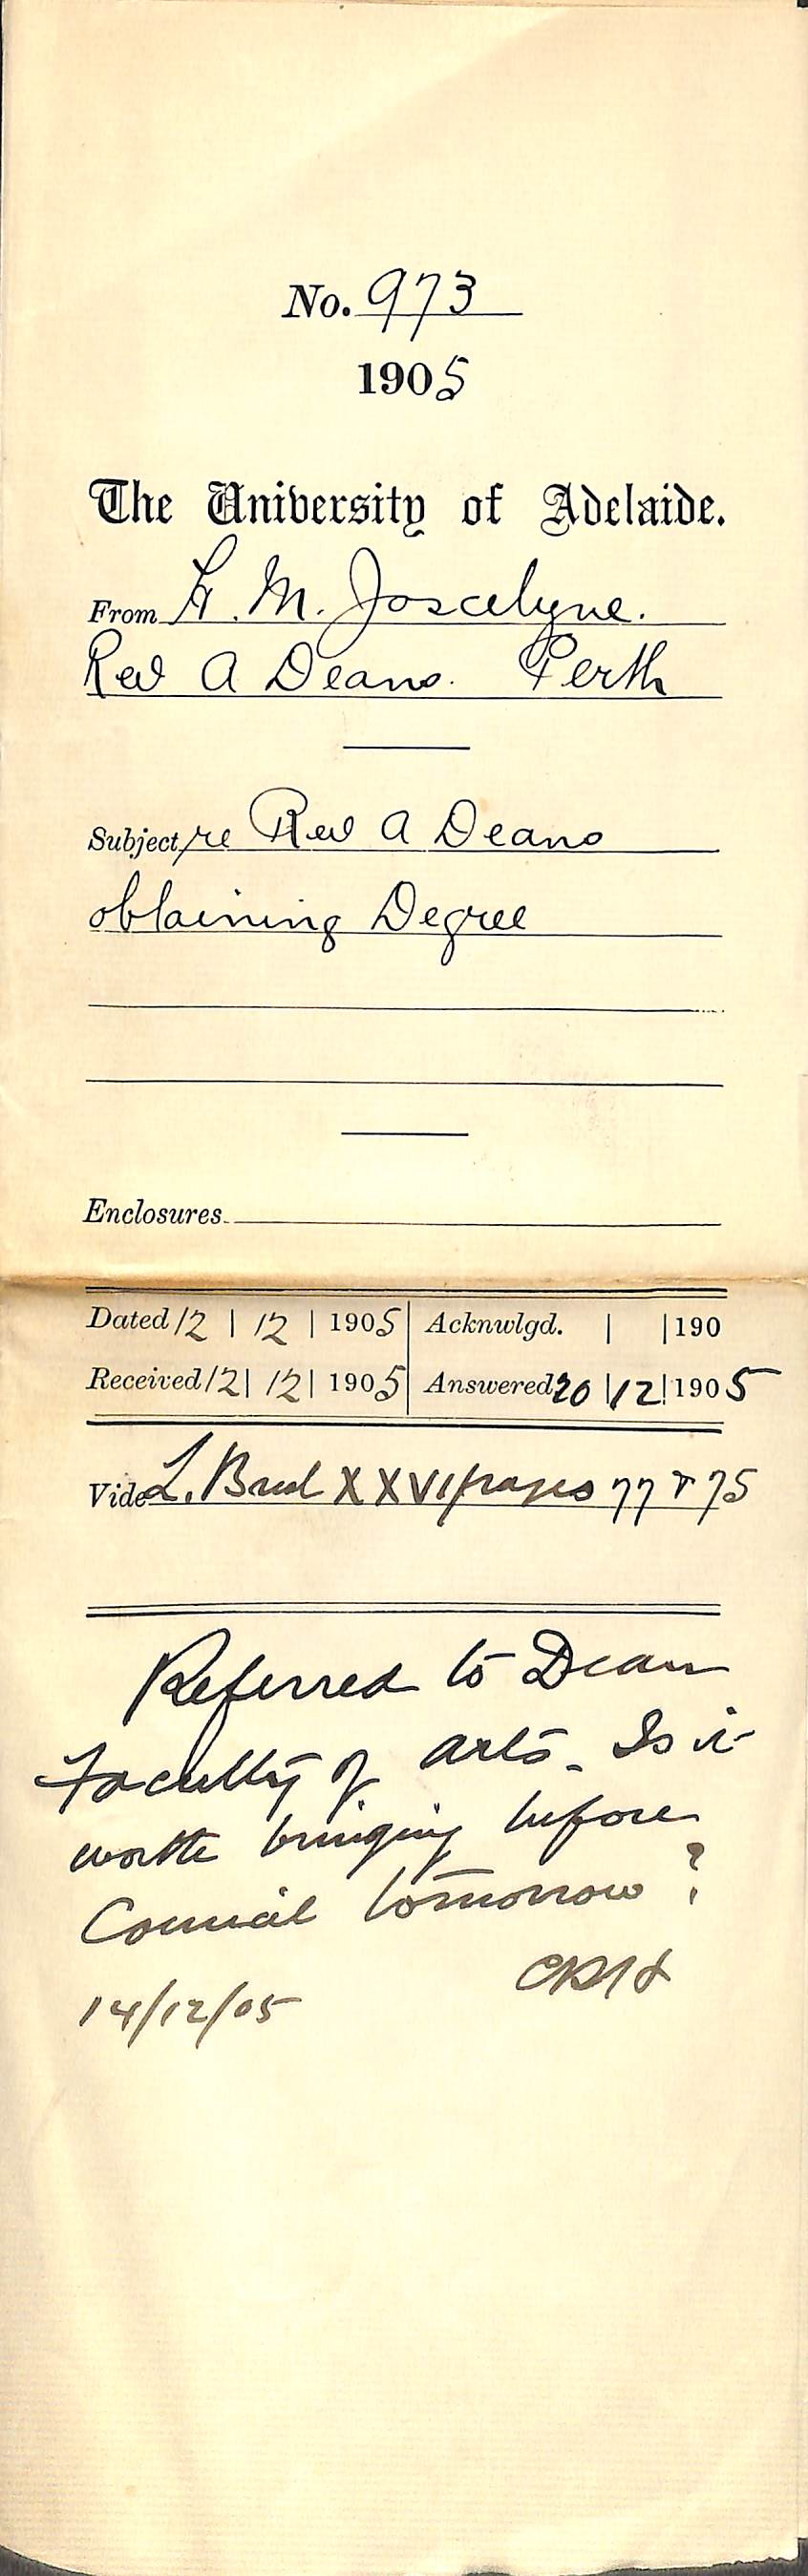 No. 973
1905
The University of Adelaide.
From H. M. Joscelyne.
Rev A Deans. Perth
Subject re Rev A Deans
obtaining Degree
Enclosures
Dated 12 | 12 | 1905 Acknwlgd. | | 190
Received 12 | 12 | 1905 Answered 20 | 12 | 1905
Vide L. XXVI pages 77 & 75
Referred to Dean
Faculty of Arts - Is it
worth bringing before
Council tomorrow?
14/12/05